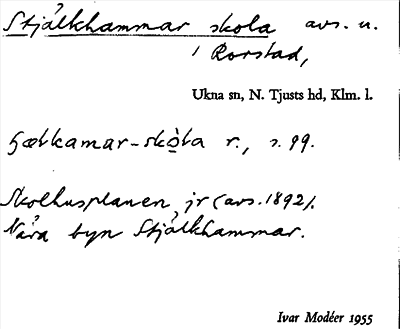 Stjälkhammar skola avs. u.
i Rorstad,
Ukna sn, N. Tjusts hd, Klm. l.
skòla r., s. 99.
Skolhusplanen, jr (avs. 1892).
Nära byn Stjälkhammar.
Ivar Modéer 1955